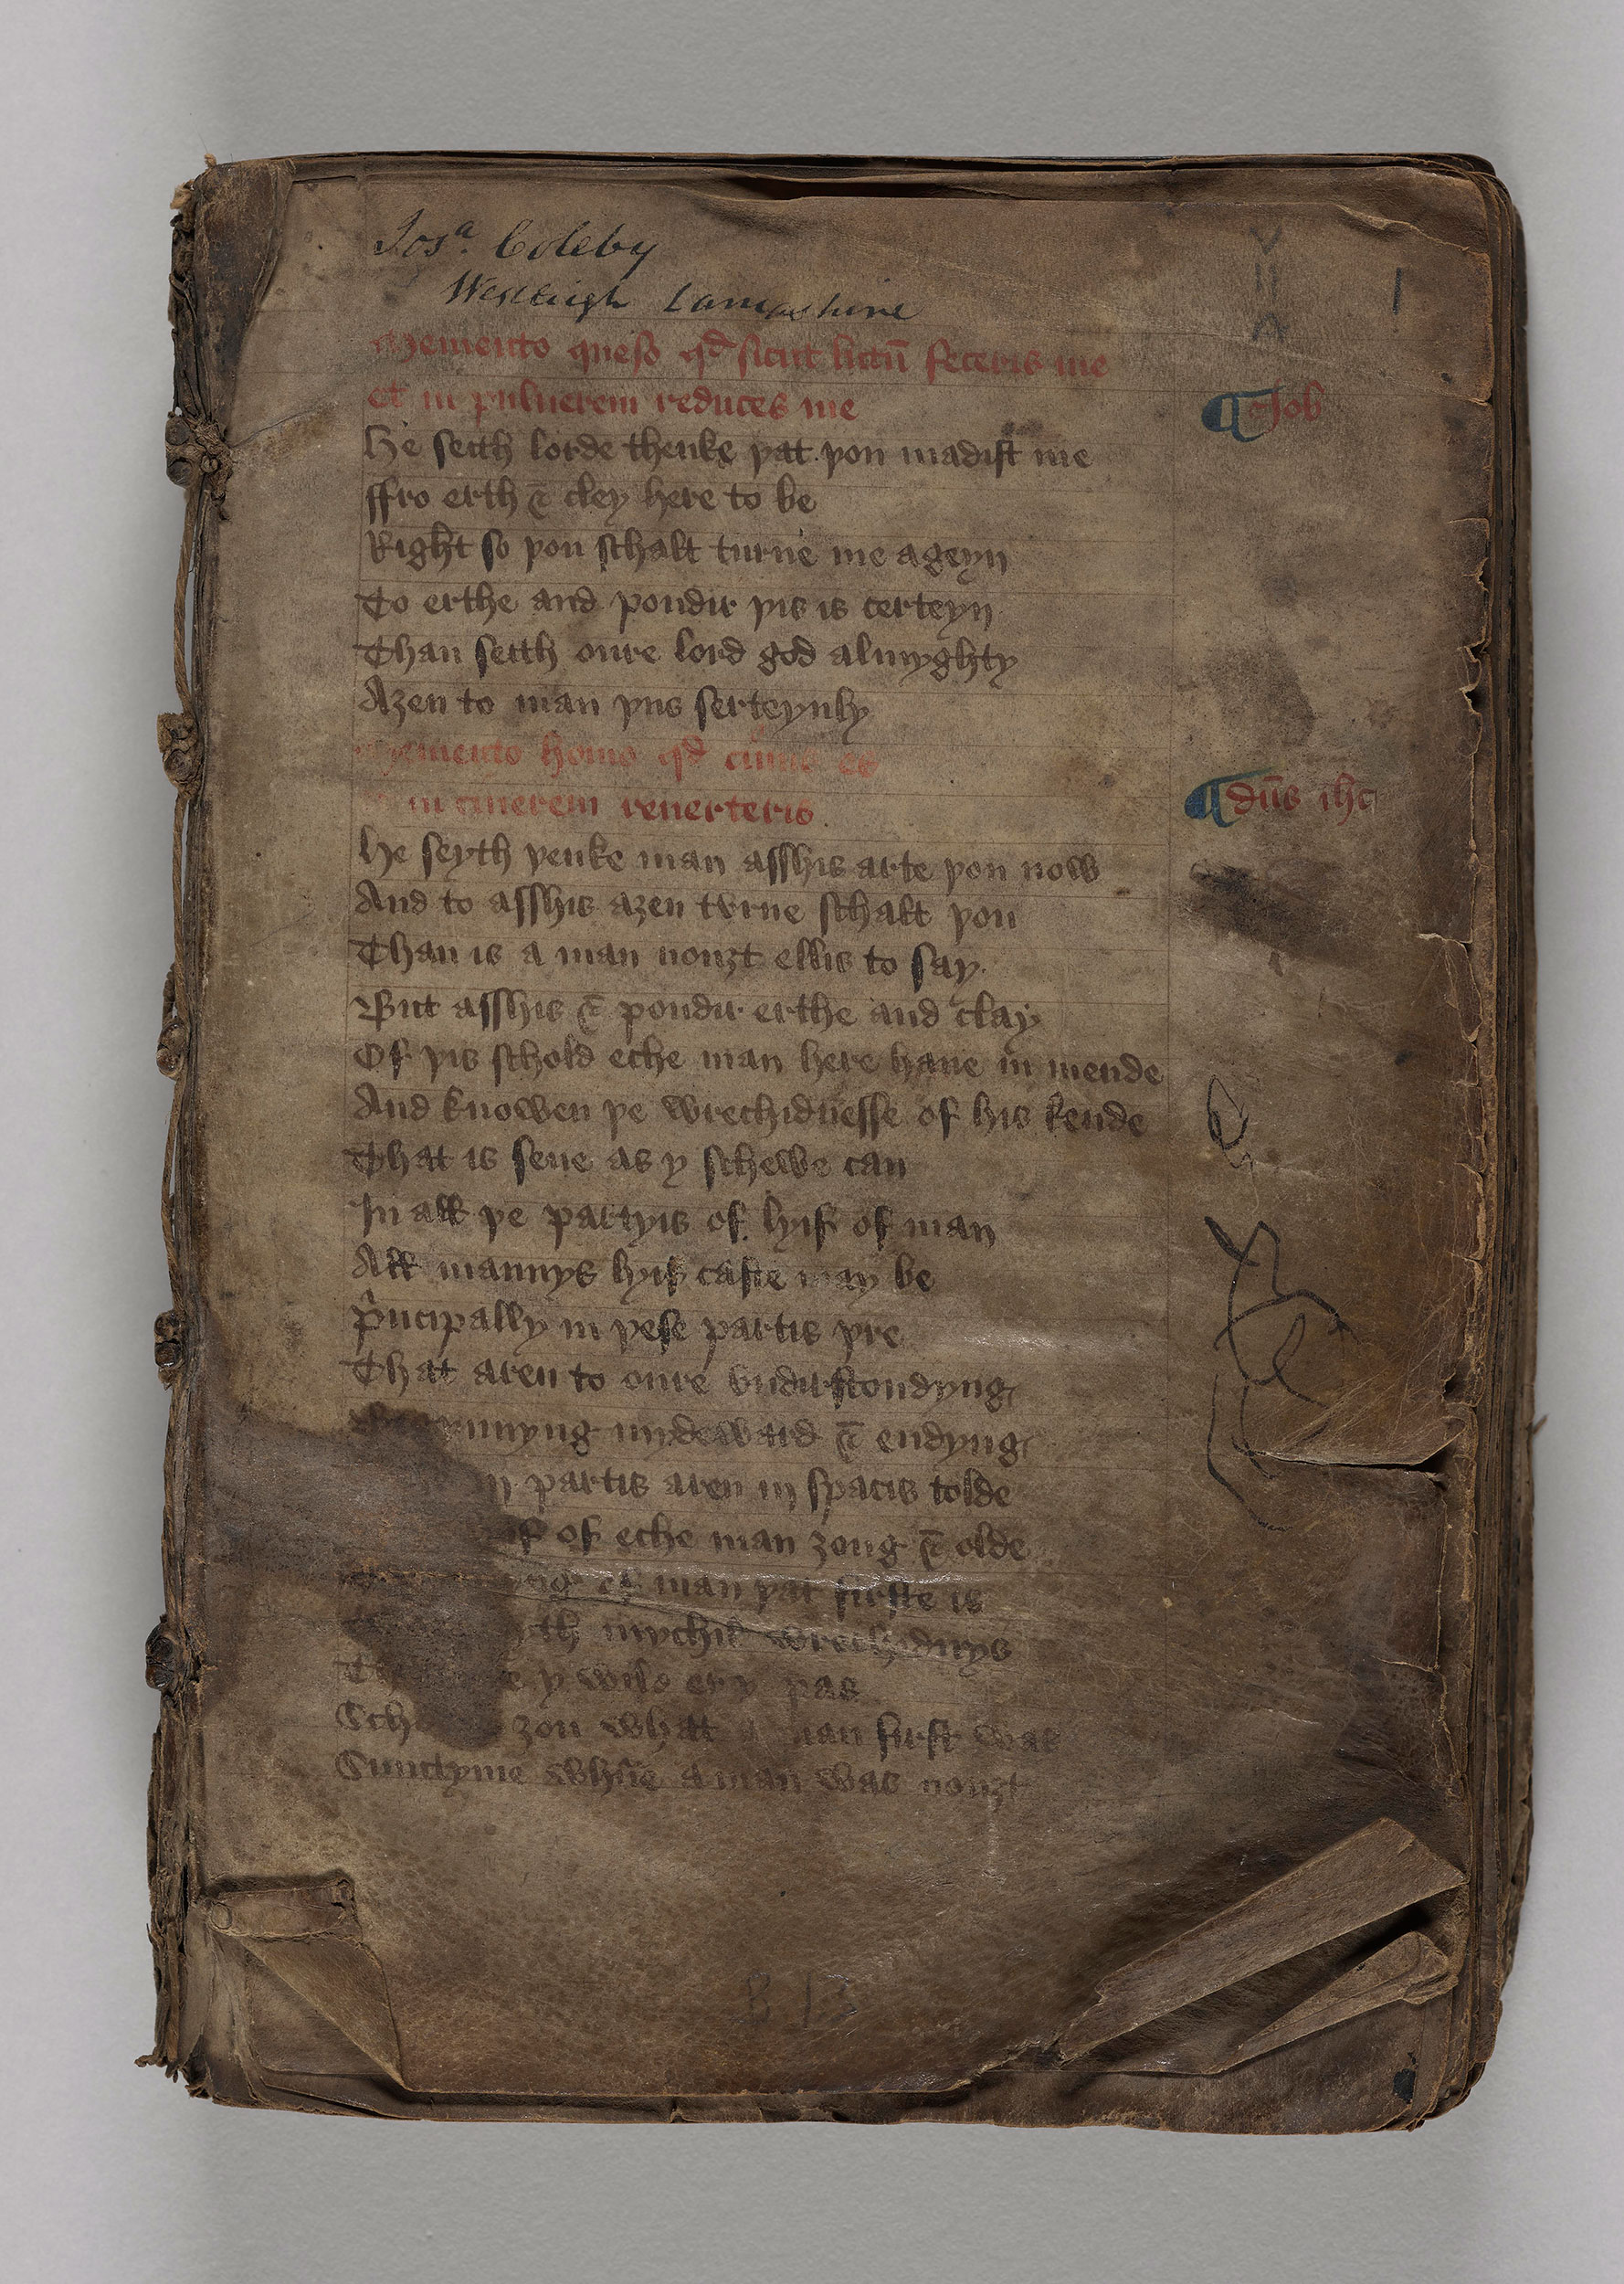 Josᵃ. Coleby
Westleigh Lancashire
1
Memento queso qd̄ sicut lutū feceris me
Et in puluerem reduces me
¶ Job
He seith lorde thenke þat þou madist me
ffro erth & cley here to be
Right so þou schalt turne me ageyn
To erthe and poudir þis is certeyn
Than seith oure lord god almyghty
Aȝen to man þus serteynly
Memento homo qd̄ cinis es
in cinerem reuerteris
¶ dn̄s ihc
He seyth þenke man asshis arte þou now
And to asshis aȝen turne schalt þou
Than is a man nouȝt ellis to say
But asshis & poudir erthe and clay
Of þis schold eche man here haue in mende
And knowen þe wrechidnesse of his kende
That is sene as y schewe can
In all þe partyis of lyif of man
All mannys lyif caste may be
p̄ncipally in þese partis þre
That aren to oure vndirstondyng
nnyng mydeward & endyng
partis aren in spacis tolde
of eche man ȝong & olde
of man þat firste is
mychil wrechidnys
y wile er y pas
Sch ȝou whatt man first was
Sumtyme whn̄e a man was nouȝt
B 13